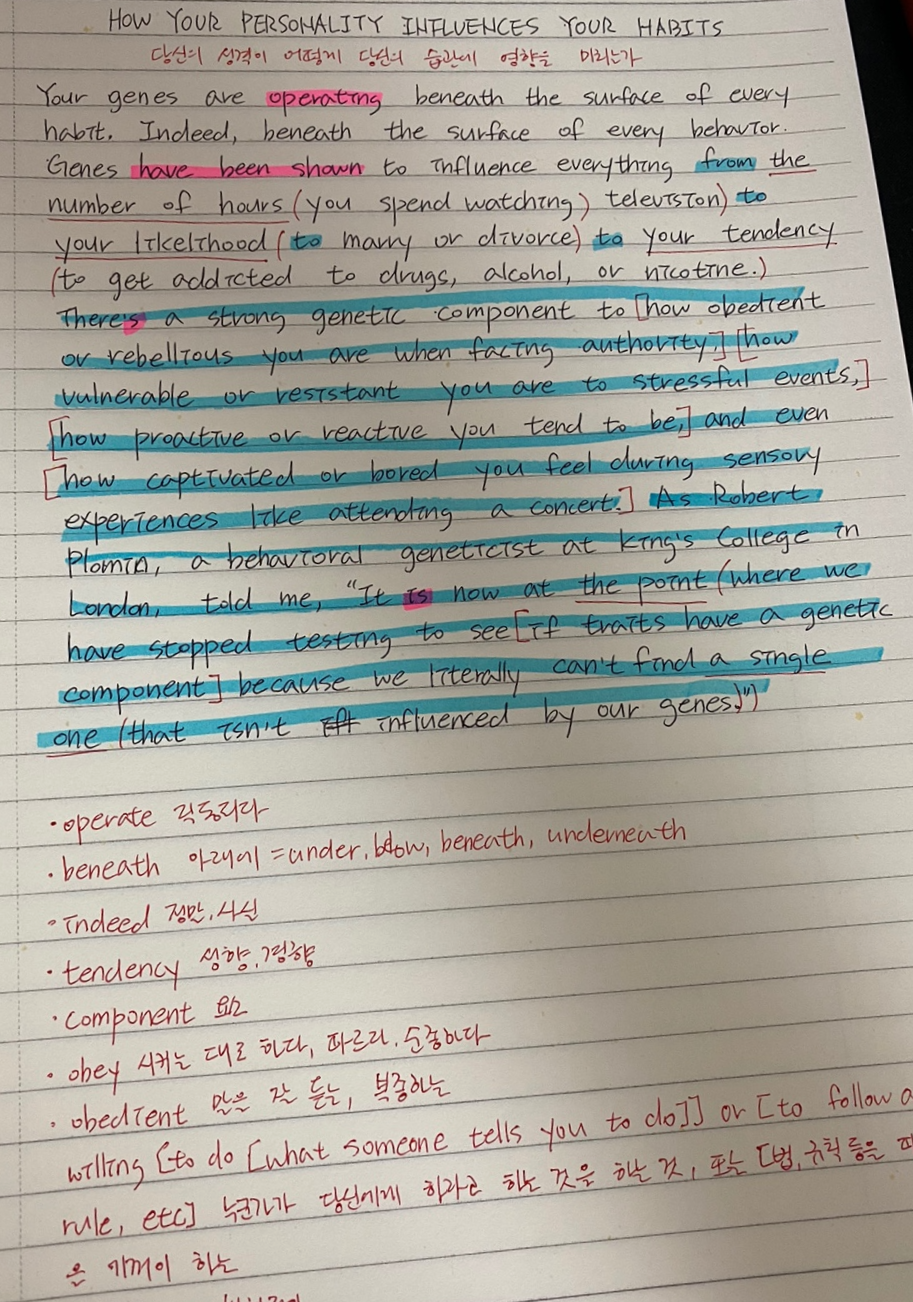 HOW YOUR PERSONALITY INFLUENCES YOUR HABITS
당신의 성격이 어떻게 당신의 습관에 영향을 미치는가
Your genes are operating beneath the surface of every
habit. Indeed, beneath the surface of every behavior.
Genes have been shown to influence everything from the
number of hours (you spend watching) television) to
your likelihood (to marry or divorce) to your tendency
(to get addicted to drugs, alcohol, or nicotine.)
There's a strong genetic component to [how obedient
or rebellious you are when facing authority,] [how
vulnerable or resistant you are to stressful events,]
[how proactive or reactive you tend to be,] and even
[how captivated or bored you feel during sensory
experiences like attending a concert.] As Robert
Plomin, a behavioral geneticist at King's College in
London, told me, "It is now at the point (where we
have stopped testing to see [if traits have a genetic
component] because we literally can't find a single
one (that isn't influenced by our genes.)")
• operate 작동되다
• beneath 아래에 = under, below, beneath, underneath
• indeed 정말, 사실
• tendency 성향, 경향
• component 요소
• obey 시키는 대로 하다, 따르다, 순종하다
• obedient 말을 잘 듣는, 복종하는
willing [to do [what someone tells you to do]] or [to follow a
rule, etc] 누군가가 당신에게 하라고 하는 것을 하는 것, 또는 [법, 규칙 등을
을 기꺼이 하는